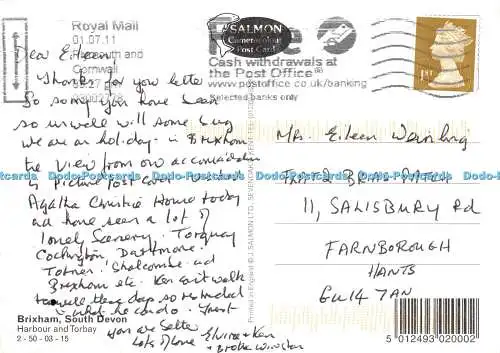 Royal Mail
01.07.11
Plymouth and
Cornwall
SALMON
Cameracolour
Post Card
Cash withdrawals at
the Post Office
www.postoffice.co.uk/banking
Selected banks only
1st
Dear Eileen
Thanks for you letter
So sorry you have been
so unwell with some bug
we are on holiday in Brixham
the view from our accomodation
is picture post card visited
Agatha Christie Home today
and have seen a lot of
lovely Scenery. Torquay
Cockington, Dartmoor.
Totnes. Shalcombe and
Brixham etc. Ken can't walk
too well these days so restricted
in what he can do. Trust
you are better
Lots of love Elvira + Ken
+ Winston
Brixham, South Devon
Harbour and Torbay
2 - 50 - 03 - 15
Printed in England © J. SALMON LTD., SEVENOAKS
Mrs. Eileen
BRIAR PATCH
11, SALISBURY Rd
FARNBOROUGH
HANTS
GU14 7AN
5 012493 020002
Dodo-Postcards Dodo-Postcards Dodo-Postcards Dodo-Postcards